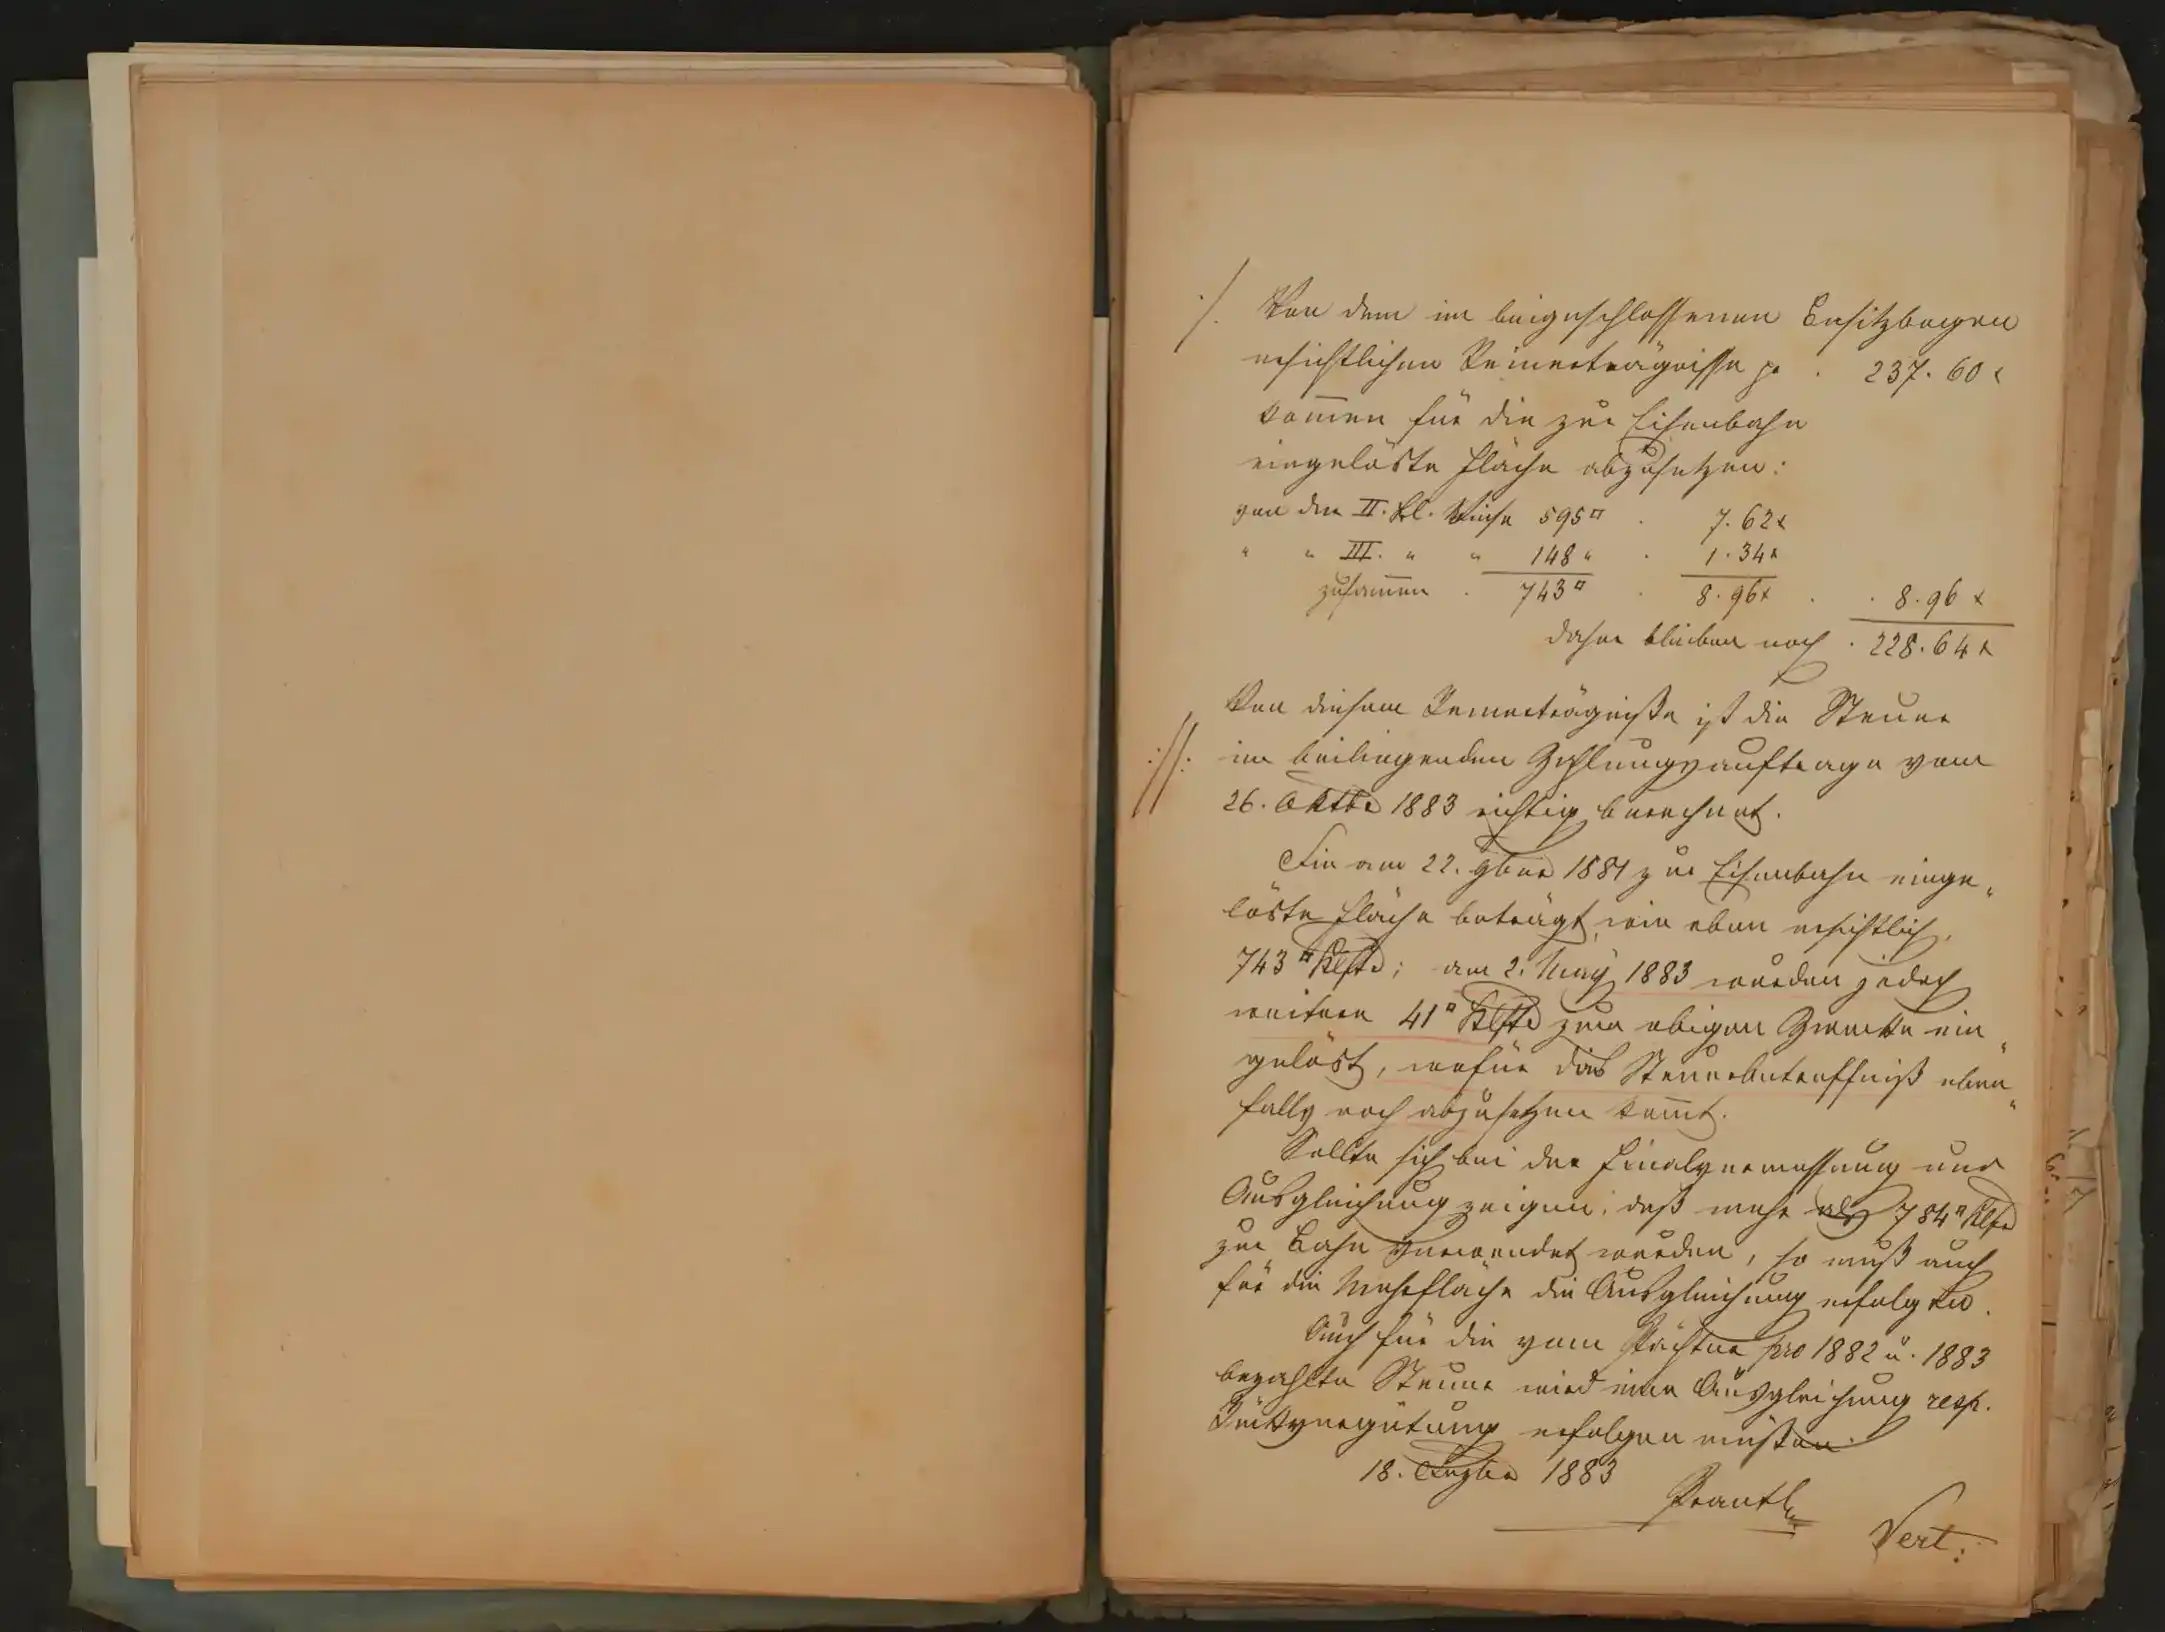 ./. Von dem im beigeschlossenen Besitzbogen
ersichtlichen Reinerträgnisse pr . 237. 60 x
kom̄en für die zur Eisenbahn
eingelöste Fläche abzusetzen:
von der II. Kl. Wiese 595□ . 7. 62x
" " III. " " 148 " . 1. 34x
zusam̄en . 743□ . 8. 96x . . 8. 96 x
daher bleiben noch . 228. 64 x
Von diesem Reinerträgniße ist die Steuer
://: im beiliegenden Zahlungsauftrage vom
26. Oktbr 1883 richtig berechnet.
Die am 22. 9ber 1881 zur Eisenbahn einge„
löste Fläche beträgt, wie oben ersichtlich,
743□ Klftr; am 2. May 1883 wurden jedoch
weitere 41□ Klftr zum obigen Zwecke ein„
gelöst, wofür das Steuerbetreffniß eben„
falls noch abzusetzen kom̄t.
Sollte sich bei der Finalvermessung und
Ausgleichung zeigen, daß mehr als 784□ Klftr
zur Bahn verwendet wurden, so muß auch
für die Mehrfläche die Ausgleichung erfolgen.
Auch für die vom Pächter pro 1882 u. 1883
bezahlte Steuer wird eine Ausgleichung resp.
Rückvergütung erfolgen müßen.
18. 1883
Prantl
Vert: